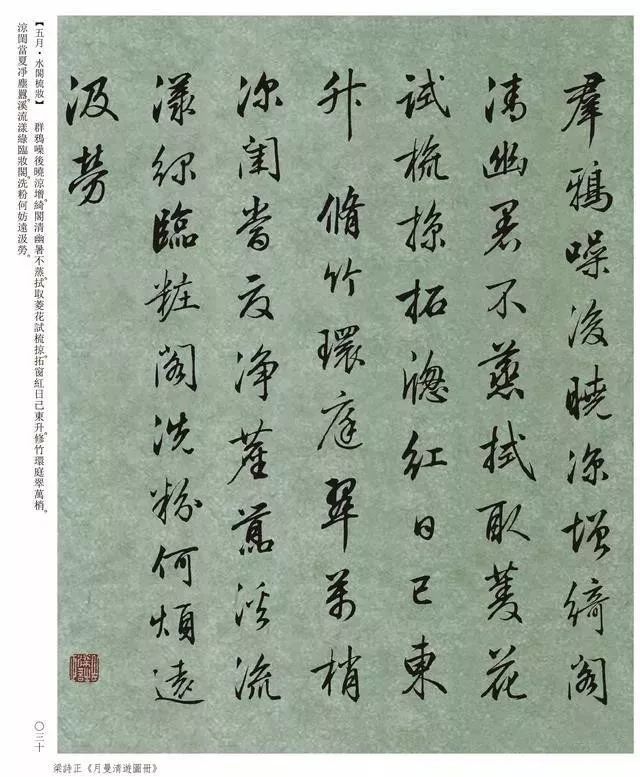 羣鴉噪後曉涼增綺閣
清幽暑不蒸拭取菱花
試梳掠拓牕紅日已東
升 脩竹環庭翠萬梢
涼閨當夏淨塵囂溪流
漾綠臨粧閣洗粉何煩遠
汲勞
【五月·水閣梳妝】 群鴉噪後曉涼增。綺閣清幽暑不蒸。拭取菱花試梳掠。拓窗紅日已東升。修竹環庭翠萬梢。
涼閨當夏凈塵囂。溪流漾綠臨妝閣。洗粉何妨遠汲勞。
〇三十
梁詩正《月曼清遊圖冊》